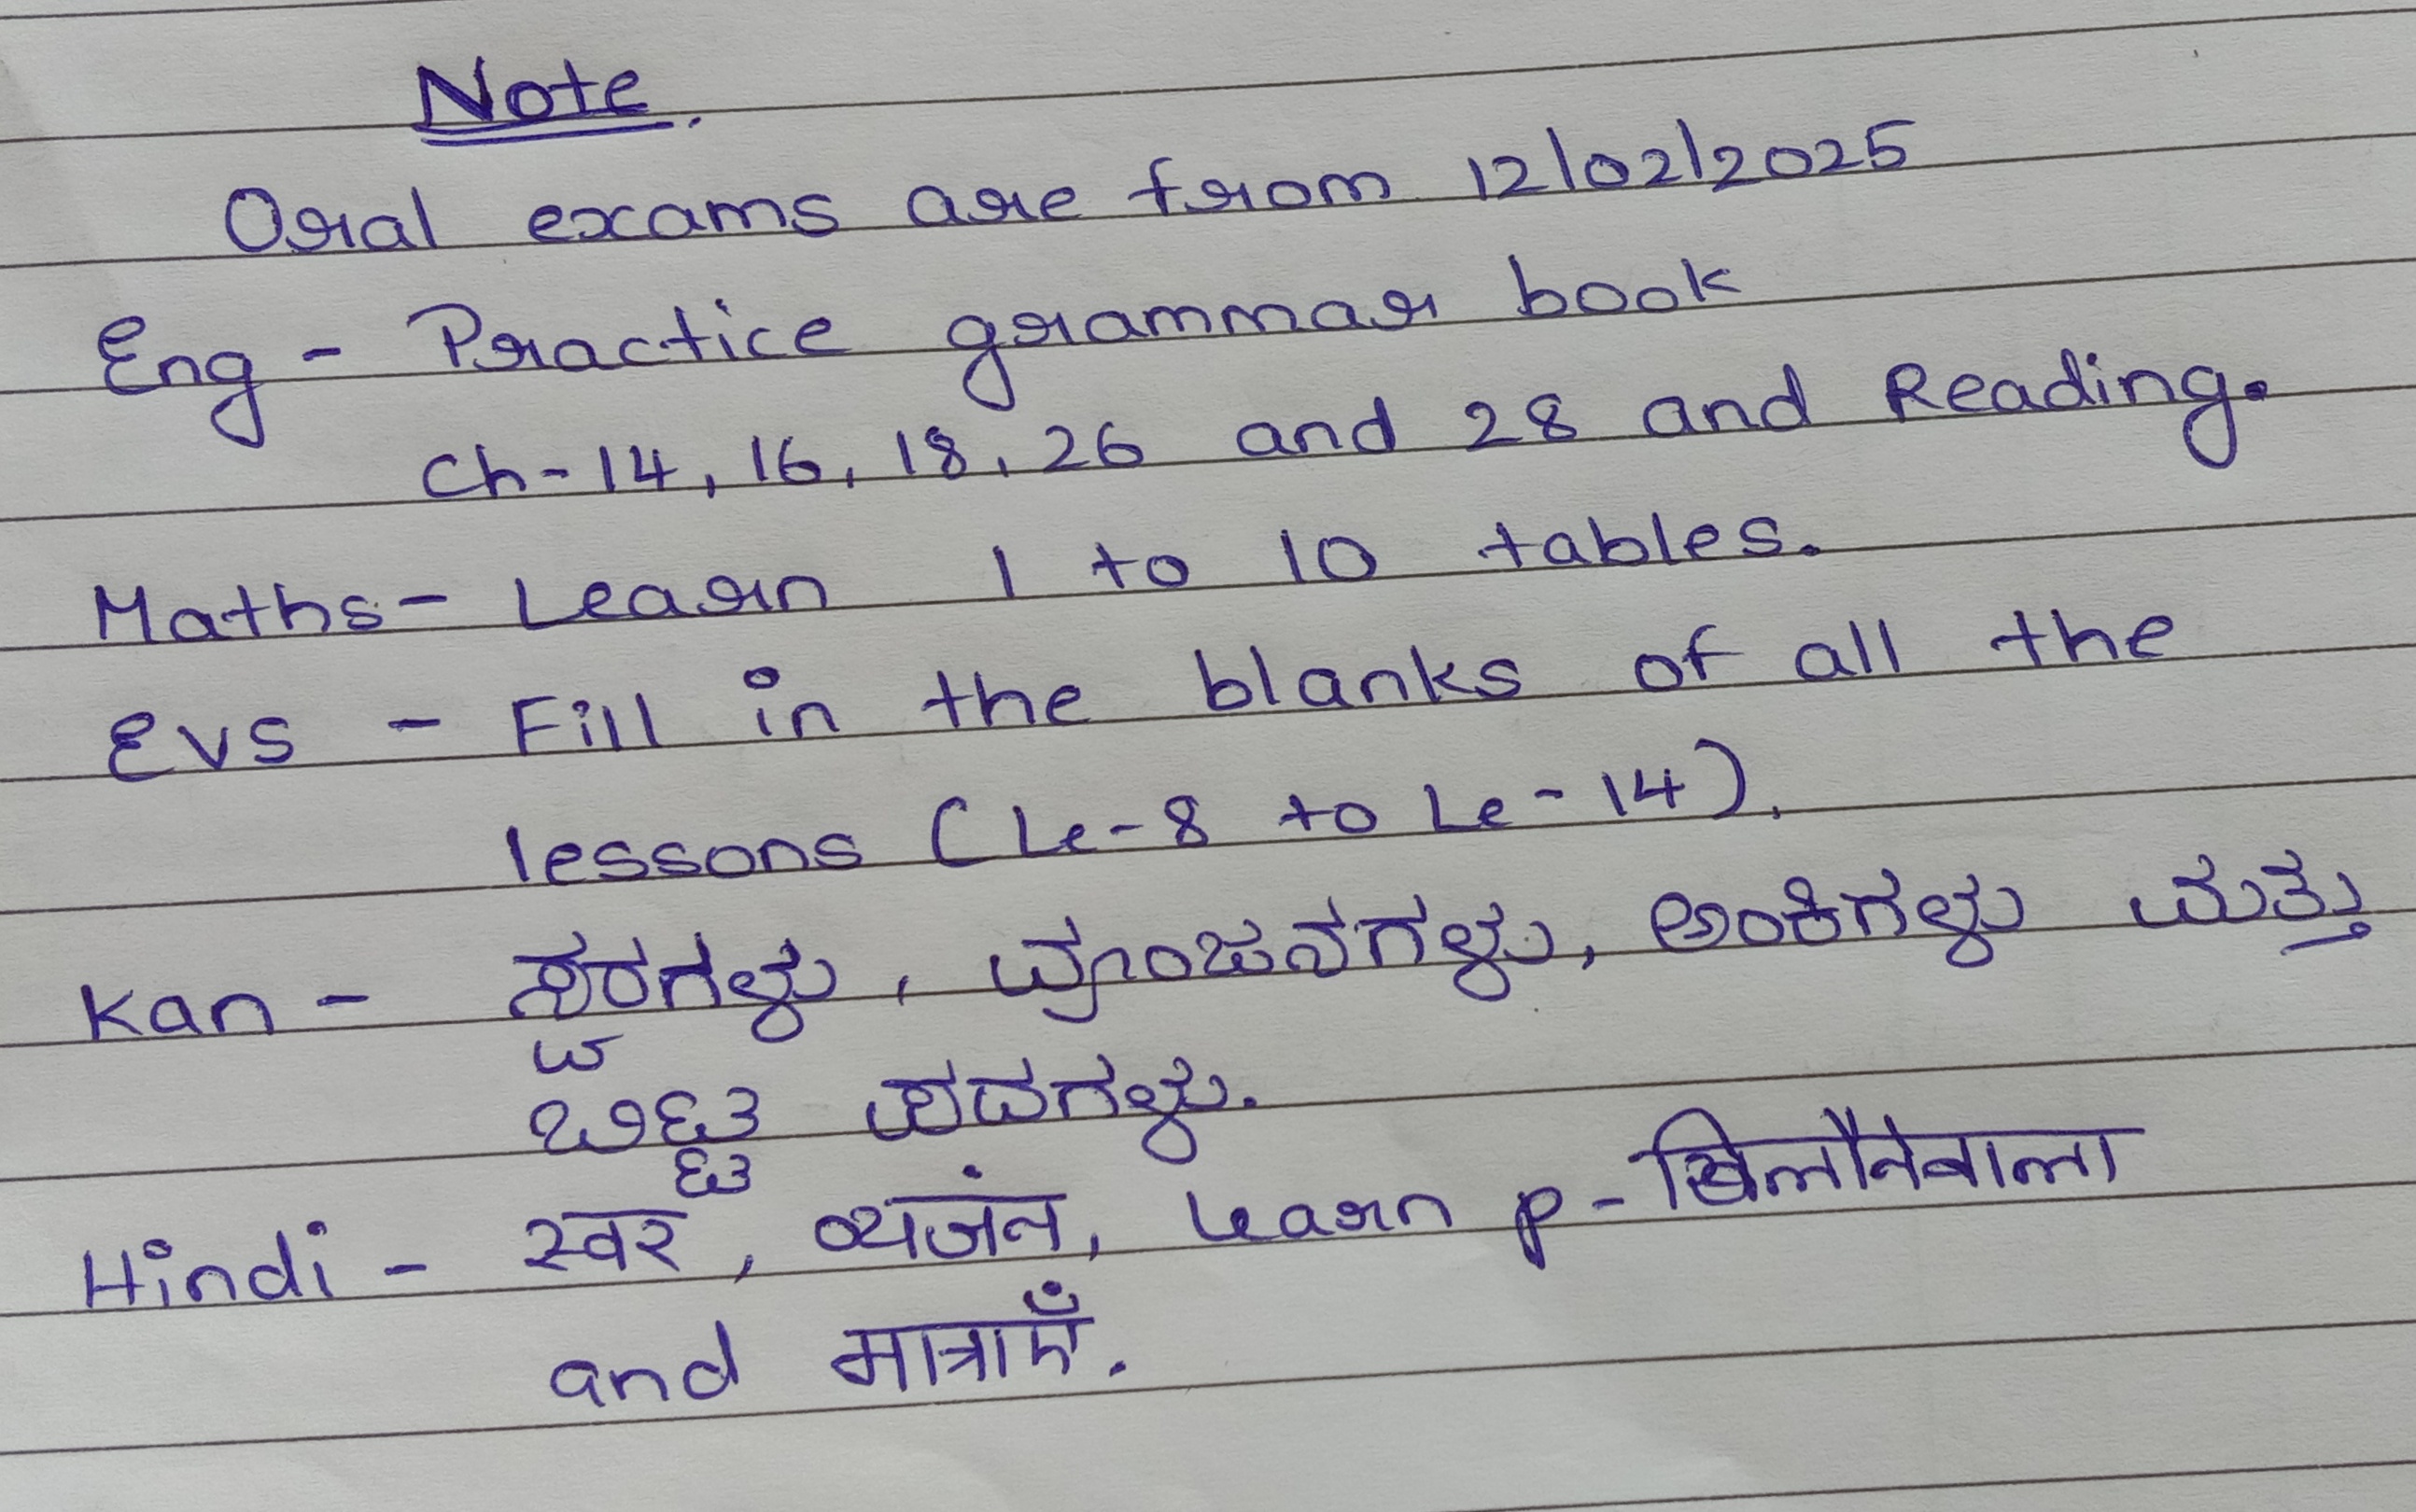 Note.
Oral exams are from 12/02/2025
Eng - Practice grammar book
Ch-14, 16, 18, 26 and 28 and Reading.
Maths- Learn 1 to 10 tables.
EVS - Fill in the blanks of all the
lessons (Le-8 to Le-14).
Kan - ಸ್ವರಗಳು, ವ್ಯಂಜನಗಳು, ಅಂಕಿಗಳು ಮತ್ತು
ಬಿಟ್ಟ ಪದಗಳು.
Hindi - स्वर, व्यजंन, Learn p-खिलौनेवाला
and मात्राएँ.